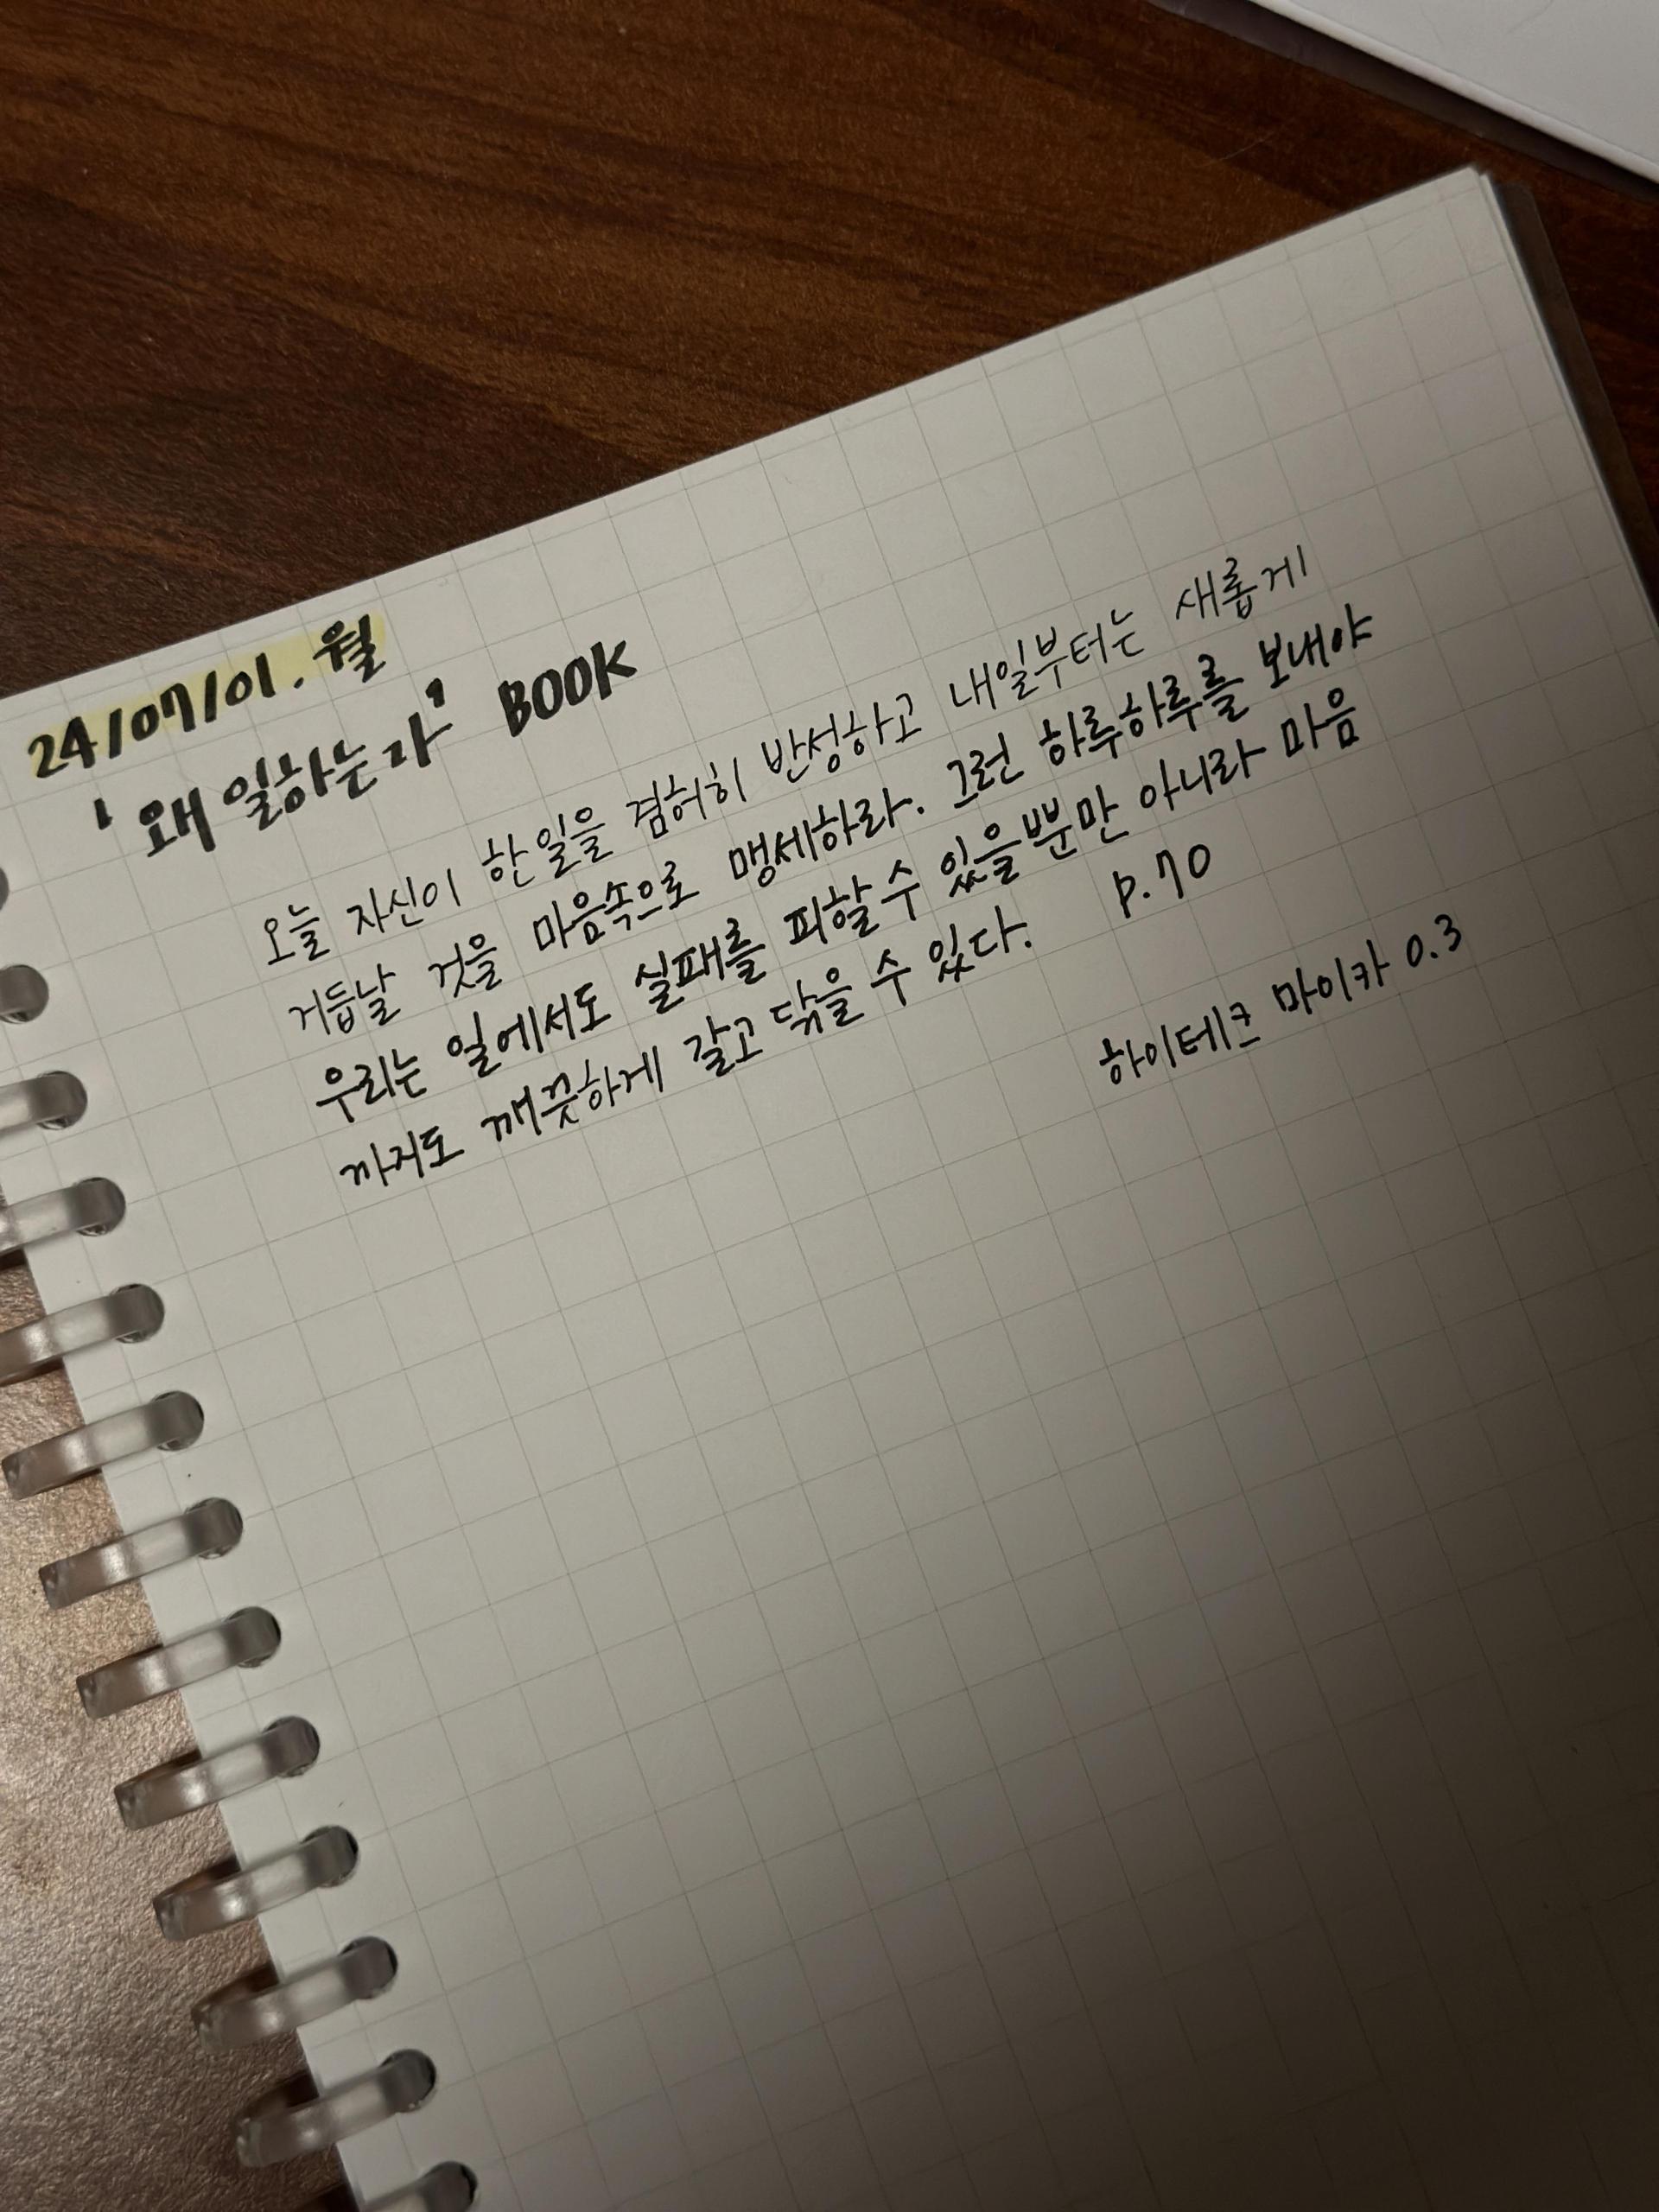 24/07/01. 월
'왜 일하는가' BOOK
오늘 자신이 한 일을 겸허히 반성하고 내일부터는 새롭게
거듭날 것을 마음속으로 맹세하라. 그런 하루하루를 보내야
우리는 일에서도 실패를 피할 수 있을뿐만 아니라 마음
까지도 깨끗하게 갈고 닦을 수 있다. p.70
하이테크 마이카 0.3